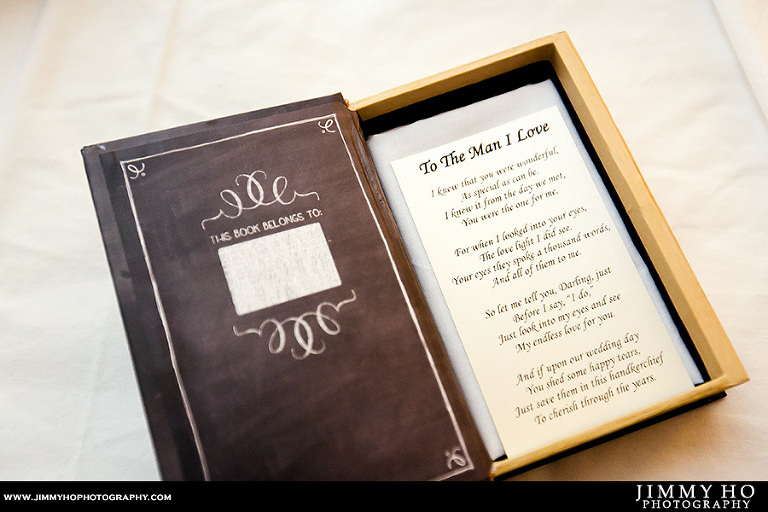 THIS BOOK BELONGS TO:
To The Man I Love
I knew that you were wonderful,
As special as can be.
I knew it from the day we met,
You were the one for me.
For when I looked into your eyes,
The love light I did see.
Your eyes they spoke a thousand words,
And all of them to me.
So let me tell you, Darling, just
Before I say, "I do,"
Just look into my eyes and see
My endless love for you.
And if upon our wedding day
You shed some happy tears,
Just save them in this handkerchief
To cherish through the years.
WWW.JIMMYHOPHOTOGRAPHY.COM
JIMMY HO
PHOTOGRAPHY